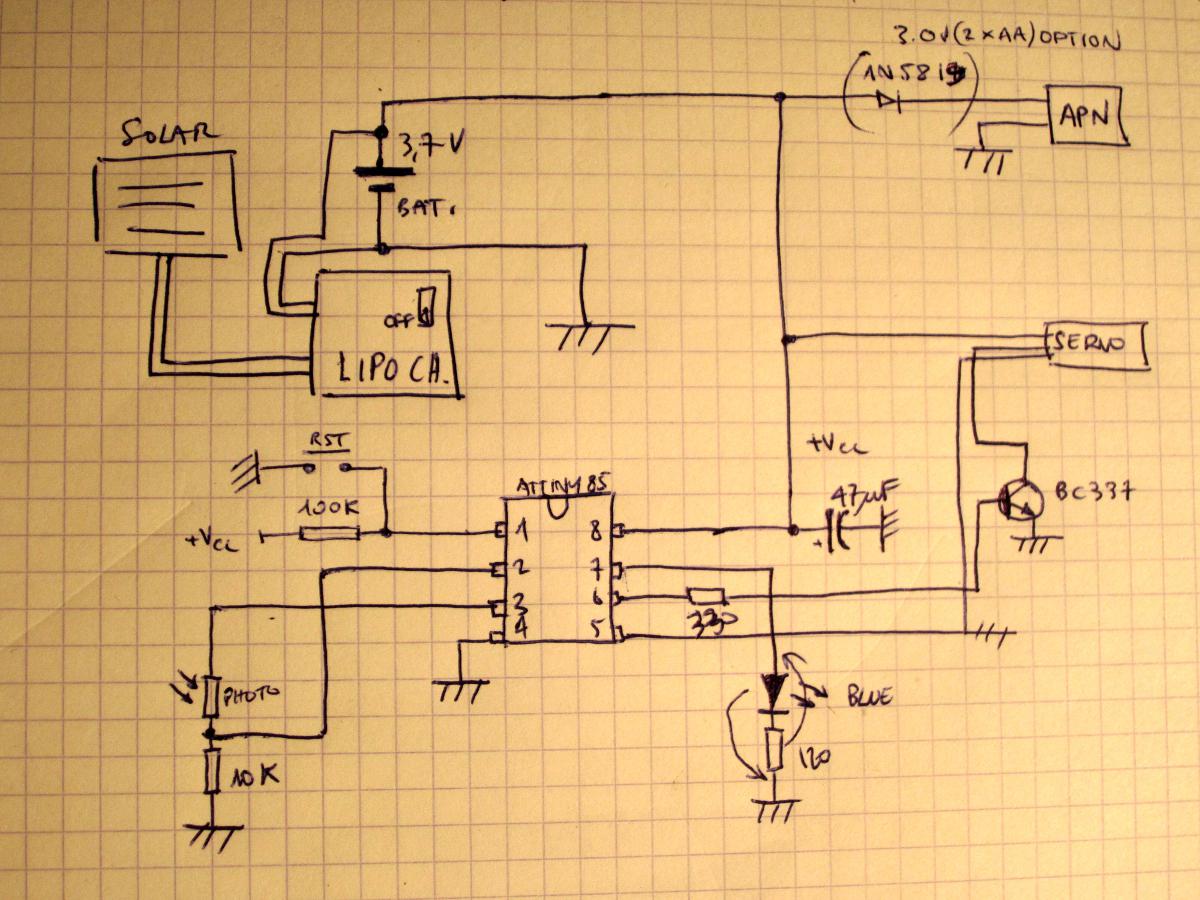 3.0V (2xAA) OPTION
(1N5819)
APN
SOLAR
3,7V
BAT.
OFF
LIPO CH.
SERVO
RST
100K
+Vcc
ATTINY85
1 8
2 7
3 6
4 5
+Vcc
47µF
BC337
330
PHOTO
10K
BLUE
120